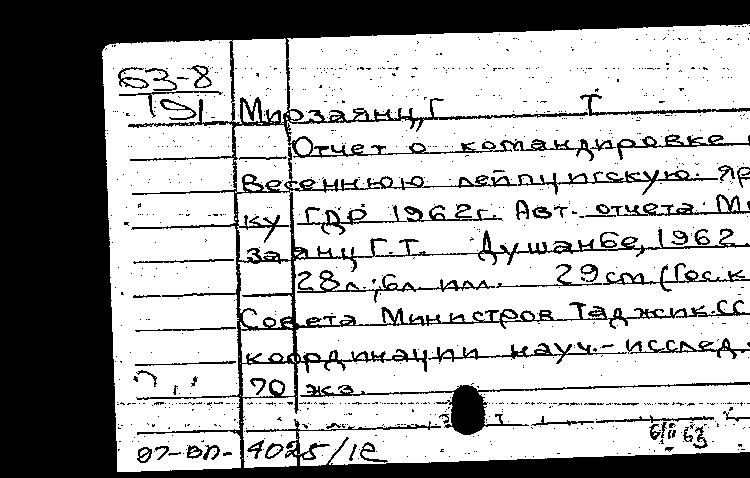 63-8
191 Мирзаянц, Г Т
Отчет о командировке
Весеннюю лейпцигскую яр
ку ГДР 1962г. Авт. отчета Ми
заянц Г.Т. Душанбе, 1962
28л.; 6л илл. 29см (Гос. к
Совета Министров Таджик.СС
координации науч.-исслед.
70 экз.
97-ВП-4025/1е
6/II 63